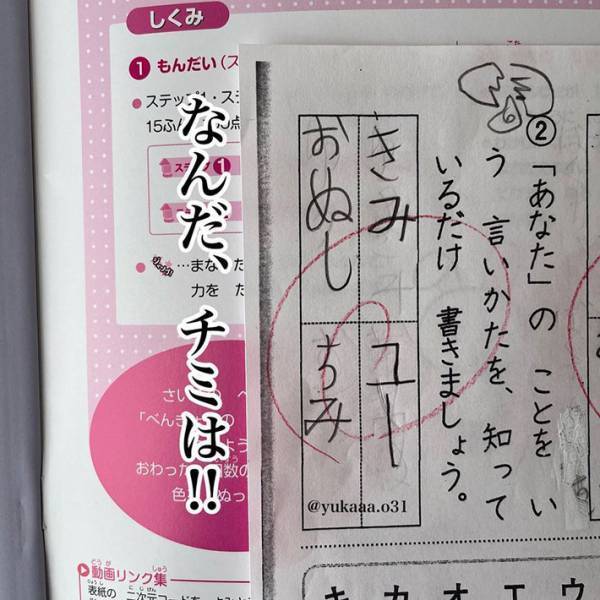 しくみ
1 もんだい
ステップ1・ス
15ふん
1
…まな
力を
さい
「べん
おわった
動画リンク集
どうが
しゅう
表紙の
なんだ、チミは!!
②「あなた」の ことを い
う 言いかたを、知って
いるだけ 書きましょう。
きみ
ユー
おぬし
ちみ
@yukaaa.o31
キ カ オ エ ウ